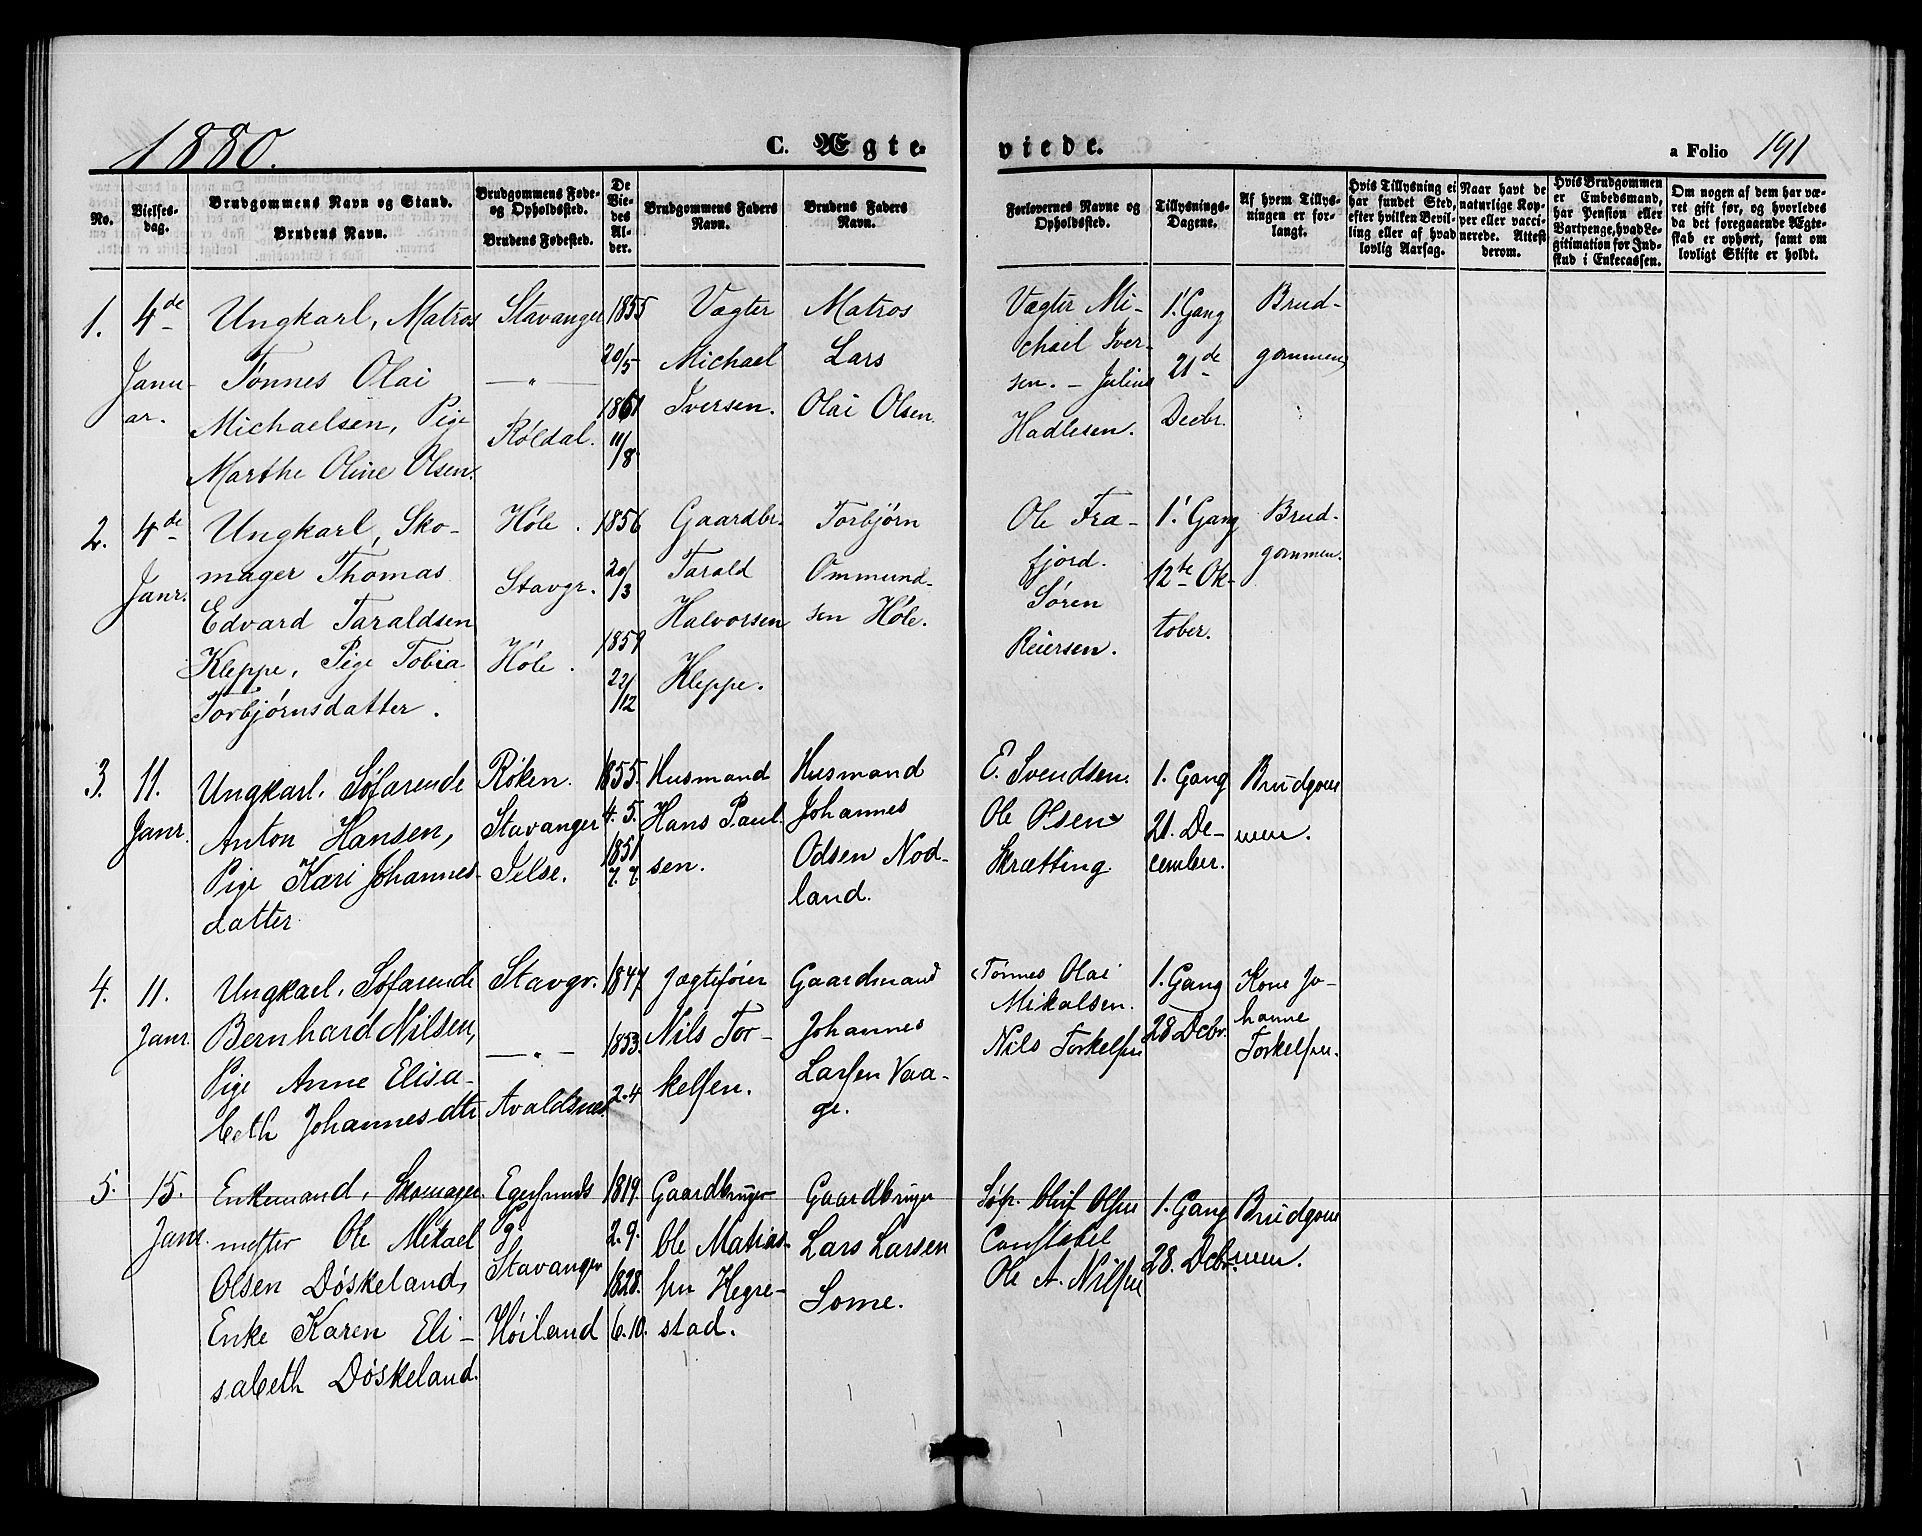 1880.
C. Ægte-
viede.
a Folio 191
No.
Vielses-
dag.
Brudgommens Navn og Stand.
Brudens Navn.
Brudgommens Føde-
og Opholdssted.
Brudens Fødested.
De
Vie-
des
Al-
der.
Brudgommens Faders
Navn.
Brudens Faders
Navn.
Forlovernes Navne og
Opholdssted.
Tillysnings-
Dagene.
Af hvem Tillys-
ningen er for-
langt.
Hvis Tillysning ei
har fundet Sted,
efter hvilken Bevil-
ling eller af hvad
lovlig Aarsag.
Naar havt de
naturlige Kop-
per eller vacci-
nerede. Attest
derom.
Hvis Brudgommen
er Embedsmand,
har Pension eller
Vartpenge, hvad Le-
gitimation for Ind-
skud i Enkecassen.
Om nogen af dem har væ-
ret gift før, og hvorledes
da det foregaaende Ægte-
skab er ophørt, samt om
lovligt Skifte er holdt.
1.
4de
Janu-
ar.
Ungkarl, Matros
Tønnes Olai
Michaelsen, Pige
Marthe Oline Olsen.
Stavanger
— " —
Røldal.
1855
20/5
1861
11/8
Vægter
Michael
Iversen.
Matros
Lars
Olai Olsen.
Vægter Mi-
chael Iver-
sen. - Julius
Hadlesen.
1' Gang
21de
Decbr.
Brud-
gommen
2.
4de
Janr.
Ungkarl, Sko-
mager Thomas
Edvard Taraldsen
Kleppe, Pige Tobia
Torbjørnsdatter.
Høle.
Stavgr.
Høle.
1856
20/3
1859
22/12
Gaardbr.
Tarald
Halvorsen
Kleppe.
Torbjørn
Ommund-
sen Høle.
Ole Fra-
fjord.
Søren
Reiersen.
1' Gang
12te Ok-
tober.
Brud-
gommen.
3.
11.
Janr.
Ungkarl, Søfarende
Anton Hansen,
Pige Kari Johannes-
datter
Røken.
Stavanger
Jelse.
1855.
4. 5.
1851
7. 7.
Husmand
Hans Paul-
sen.
Husmand
Johannes
Odsen Nod-
land.
E. Svendsen.
Ole Olsen
Skrætting.
1. Gang
21. De-
cember.
Brudgom
men.
4.
11.
Janr.
Ungkarl, Søfarende
Bernhard Nilsen,
Pige Anne Elisa-
beth Johannesdtr
Stavgr.
— " —
Avaldsnes
1847
1853.
2. 4
Jægtefører
Nils Tor-
kelsen.
Gaardmand
Johannes
Larsen Vaa-
ge.
Tønnes Olai
Mikalsen.
Nils Torkelsen
1. Gang
28 Decbr.
Kone Jo-
hanne
Torkelsen.
5.
15.
Janr.
Enkemand, Skomager
mester Ole Mikael
Olsen Døskeland,
Enke Karen Eli-
sabeth Døskeland.
Egersunds
Pg.
Stavanger
Høiland
1819.
2. 9.
1828.
6. 10.
Gaardbruger
Ole Matias-
sen Hegre-
stad.
Gaardbruger
Lars Larsen
Some.
Søf. Oluf Olsen
Constabel
Ole A. Nilsen
1. Gang
28. Decbr.
Brudgom
men.